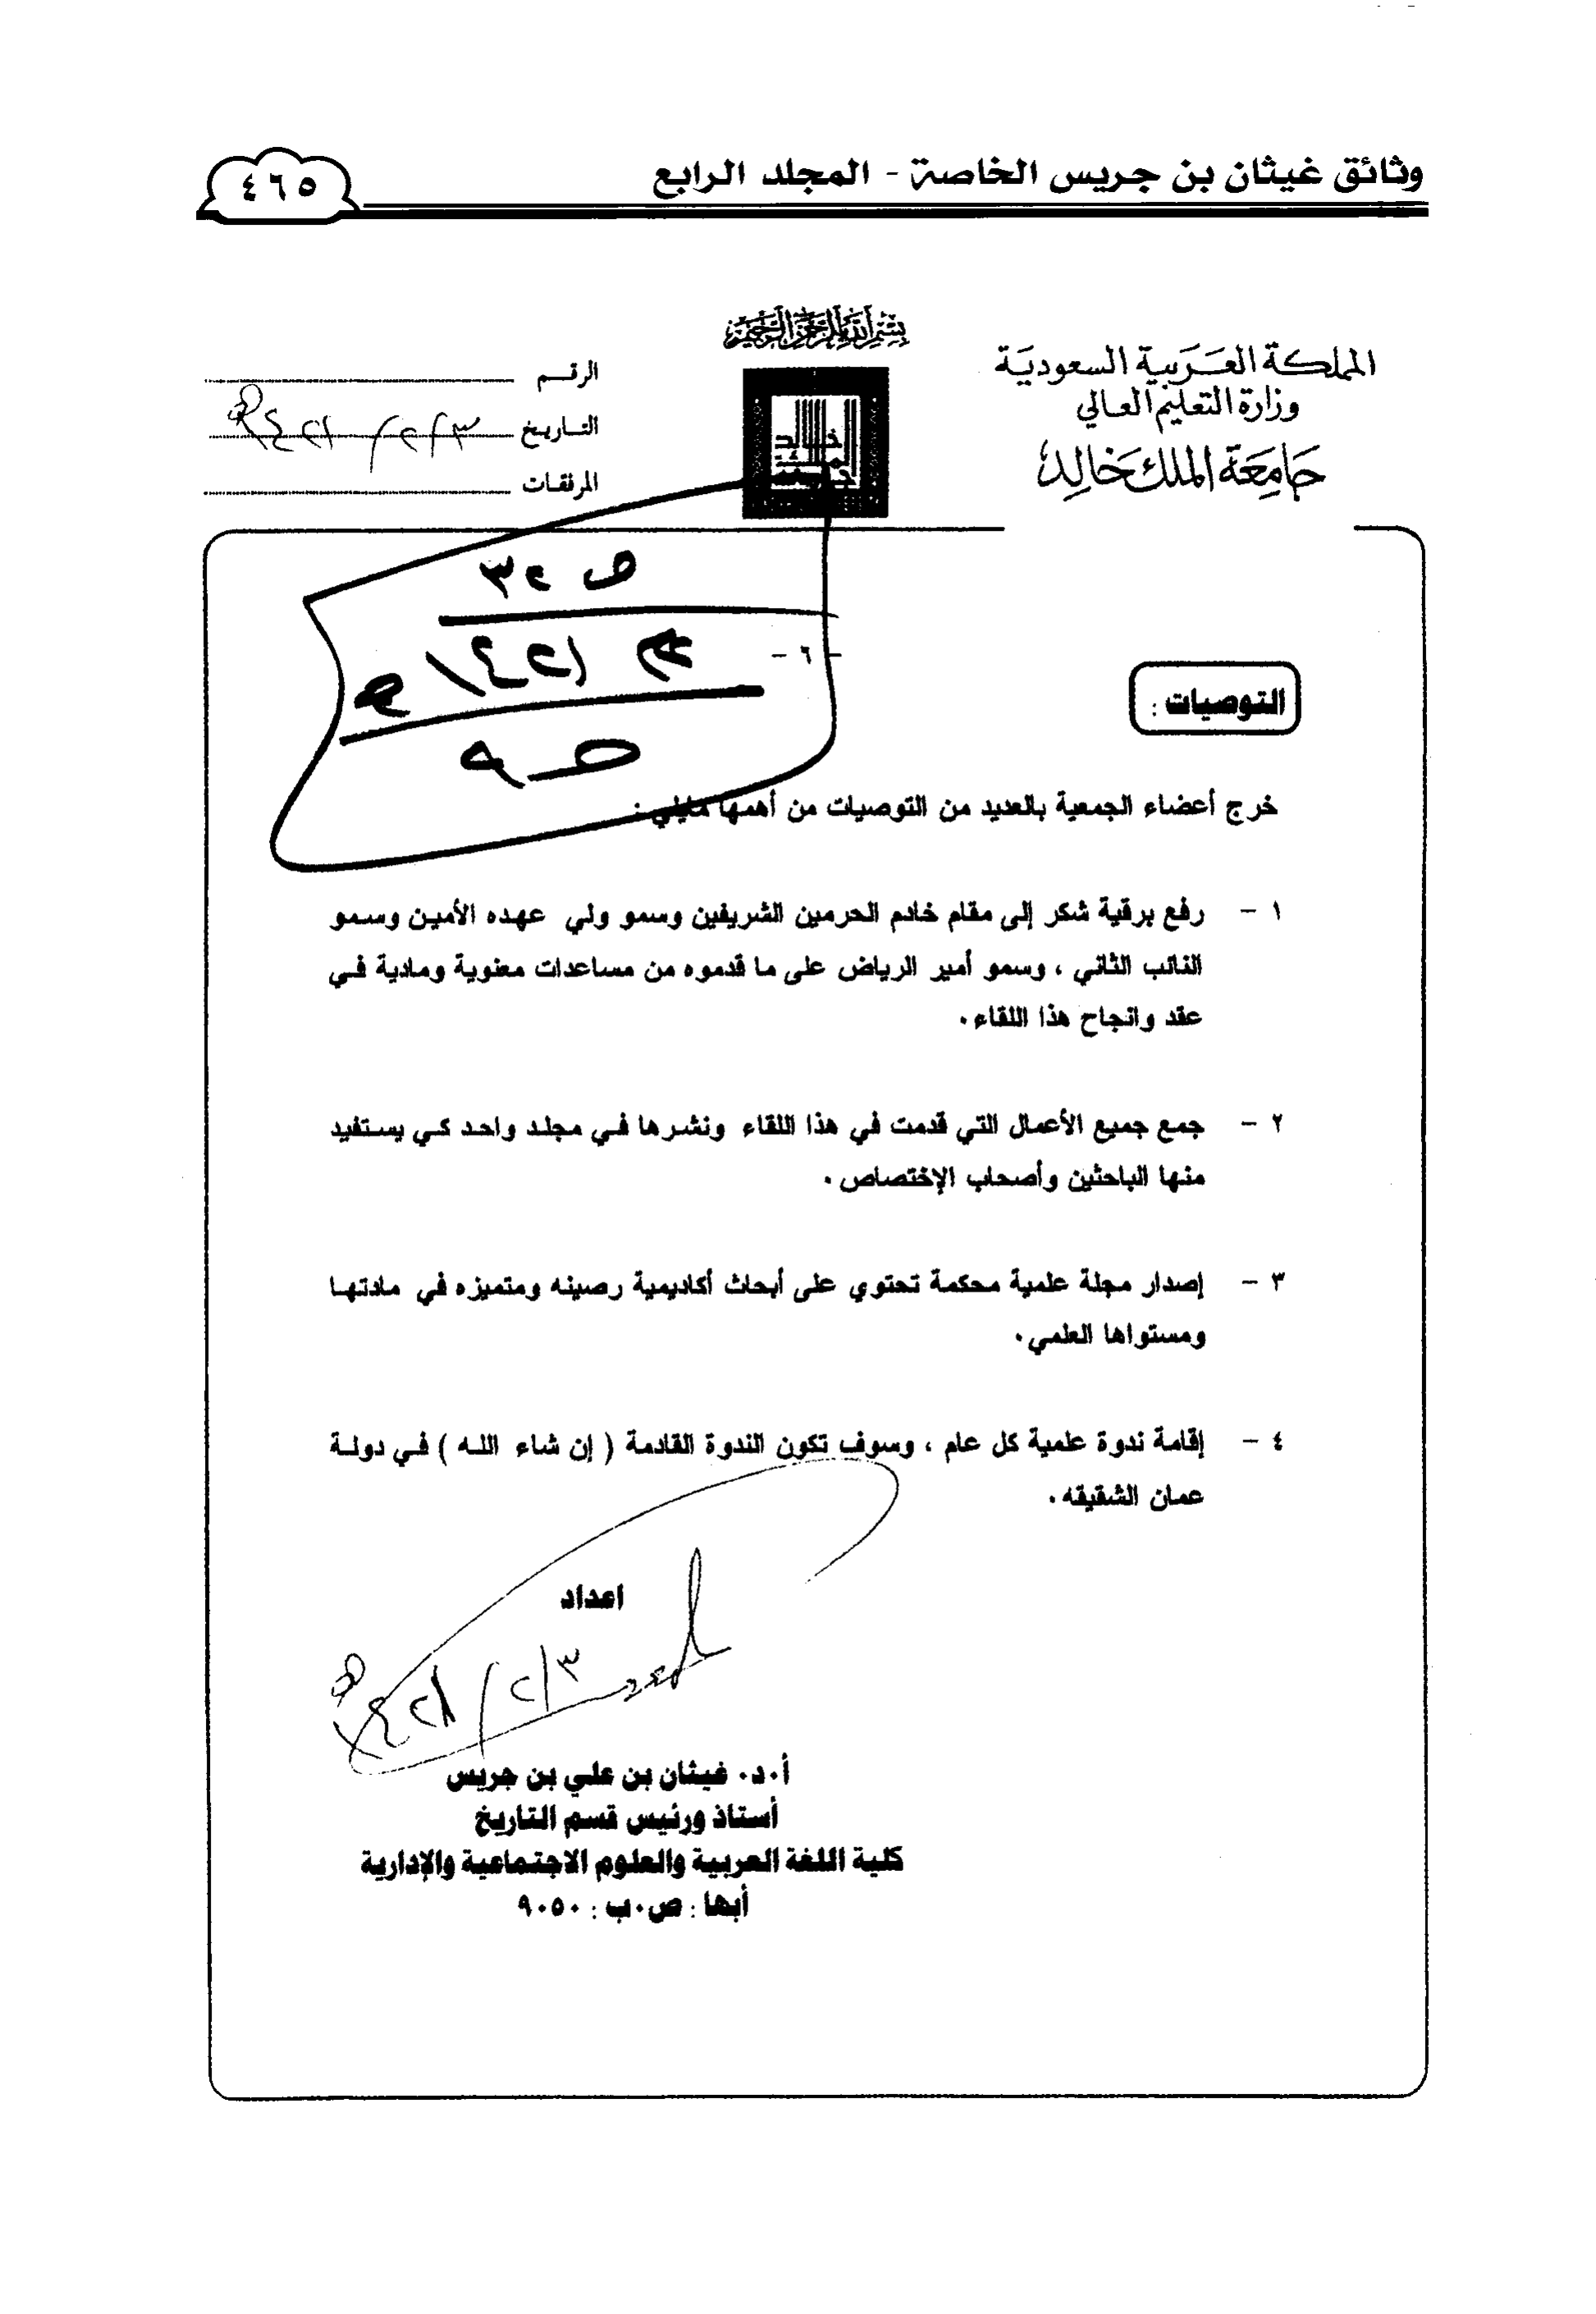 وثائق غيثان بن جريس الخاصة - المجلد الرابع
٤٦٥
بسم الله الرحمن الرحيم
المملكة العربية السعودية
وزارة التعليم العالي
جامعة الملك خالد
الرقم
التاريخ ٣/٢/١٤٢١هـ
المرفقات
- ٦ -
التوصيات :
خرج أعضاء الجمعية بالعديد من التوصيات من أهمها مايلي :
١ - رفع برقية شكر إلى مقام خادم الحرمين الشريفين وسمو ولي عهده الأمين وسمو
النائب الثاني ، وسمو أمير الرياض على ما قدموه من مساعدات معنوية ومادية في
عقد وانجاح هذا اللقاء .
٢ - جمع جميع الأعمال التي قدمت في هذا اللقاء ونشرها في مجلد واحد كي يستفيد
منها الباحثين وأصحاب الإختصاص .
٣ - إصدار مجلة علمية محكمة تحتوي على أبحاث أكاديمية رصينه ومتميزه في مادتها
ومستواها العلمي .
٤ - إقامة ندوة علمية كل عام ، وسوف تكون الندوة القادمة ( إن شاء الله ) في دولة
عمان الشقيقه .
اعداد
٣/٢/١٤٢١هـ
أ.د. غيثان بن علي بن جريس
أستاذ ورئيس قسم التاريخ
كلية اللغة العربية والعلوم الاجتماعية والإدارية
أبها : ص.ب : ٩٠٥٠